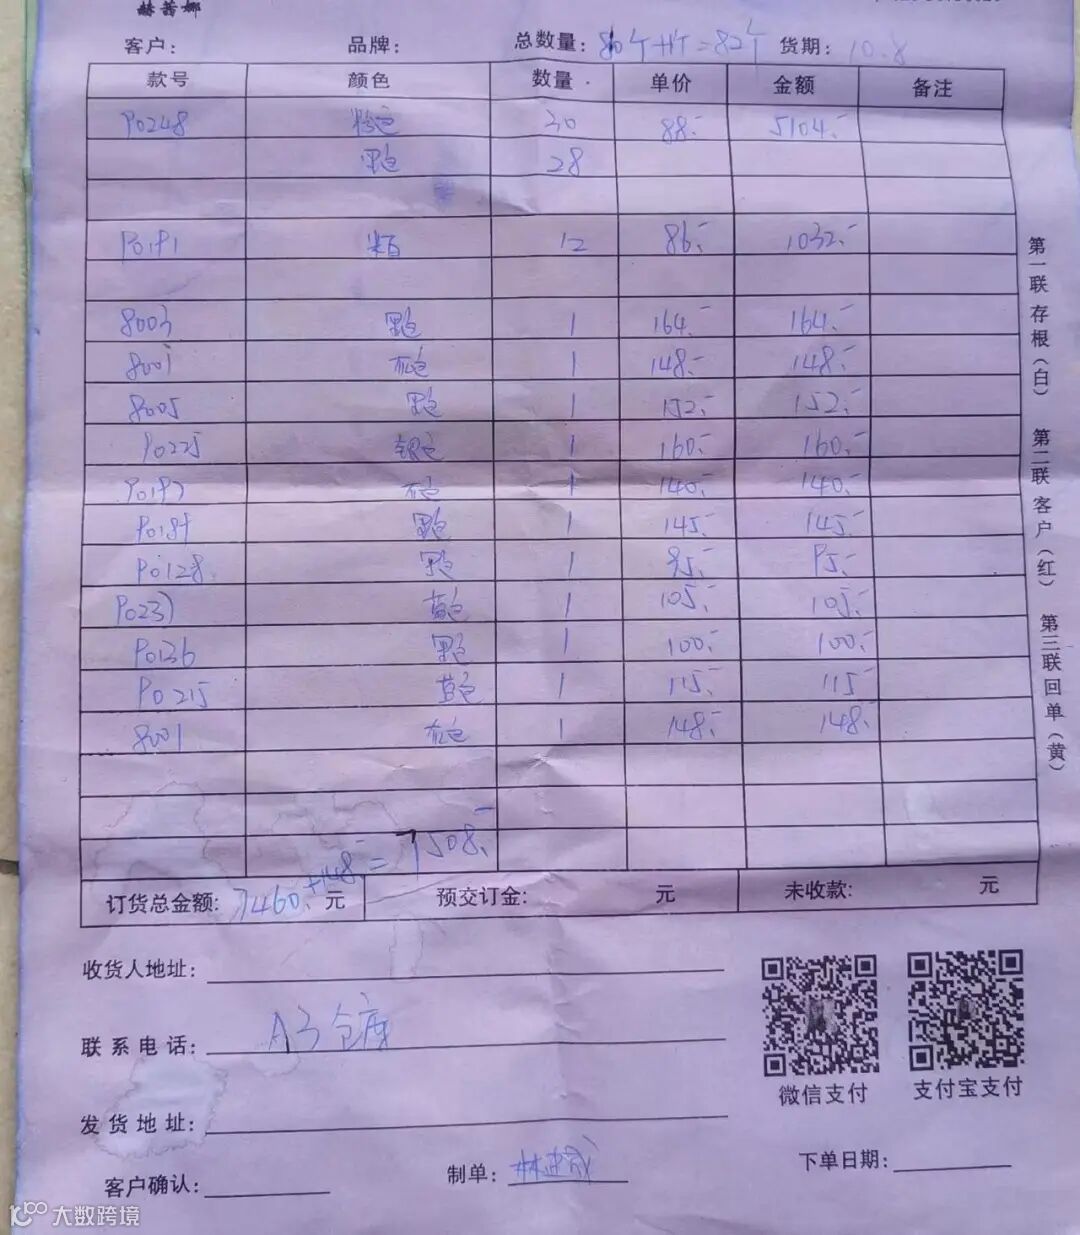 赫茜娜
客户: 品牌: 总数量: 80个+1个=82个 货期: 10.8
款号 颜色 数量 单价 金额 备注
P0248 粉色 30 88.- 5104.-
黑色 28
P0191 米白 12 86.- 1032.-
8003 黑色 1 164.- 164.-
8001 灰色 1 148.- 148.-
8005 黑色 1 152.- 152.-
P0225 银色 1 160.- 160.-
P0197 灰色 1 140.- 140.-
P0189 黑色 1 145.- 145.-
P0128 黑色 1 95.- 95.-
P0237 蓝色 1 105.- 105.-
P0136 黑色 1 100.- 100.-
P0215 蓝色 1 115.- 115
8001 灰色 1 148.- 148.-
订货总金额: 7460.+148.-=7508.- 元 预交订金: 元 未收款: 元
收货人地址:
联系电话: A3仓库
发货地址:
客户确认: 制单: 下单日期:
微信支付 支付宝支付
第一联 存根(白) 第二联 客户(红) 第三联 回单(黄)
大数跨境